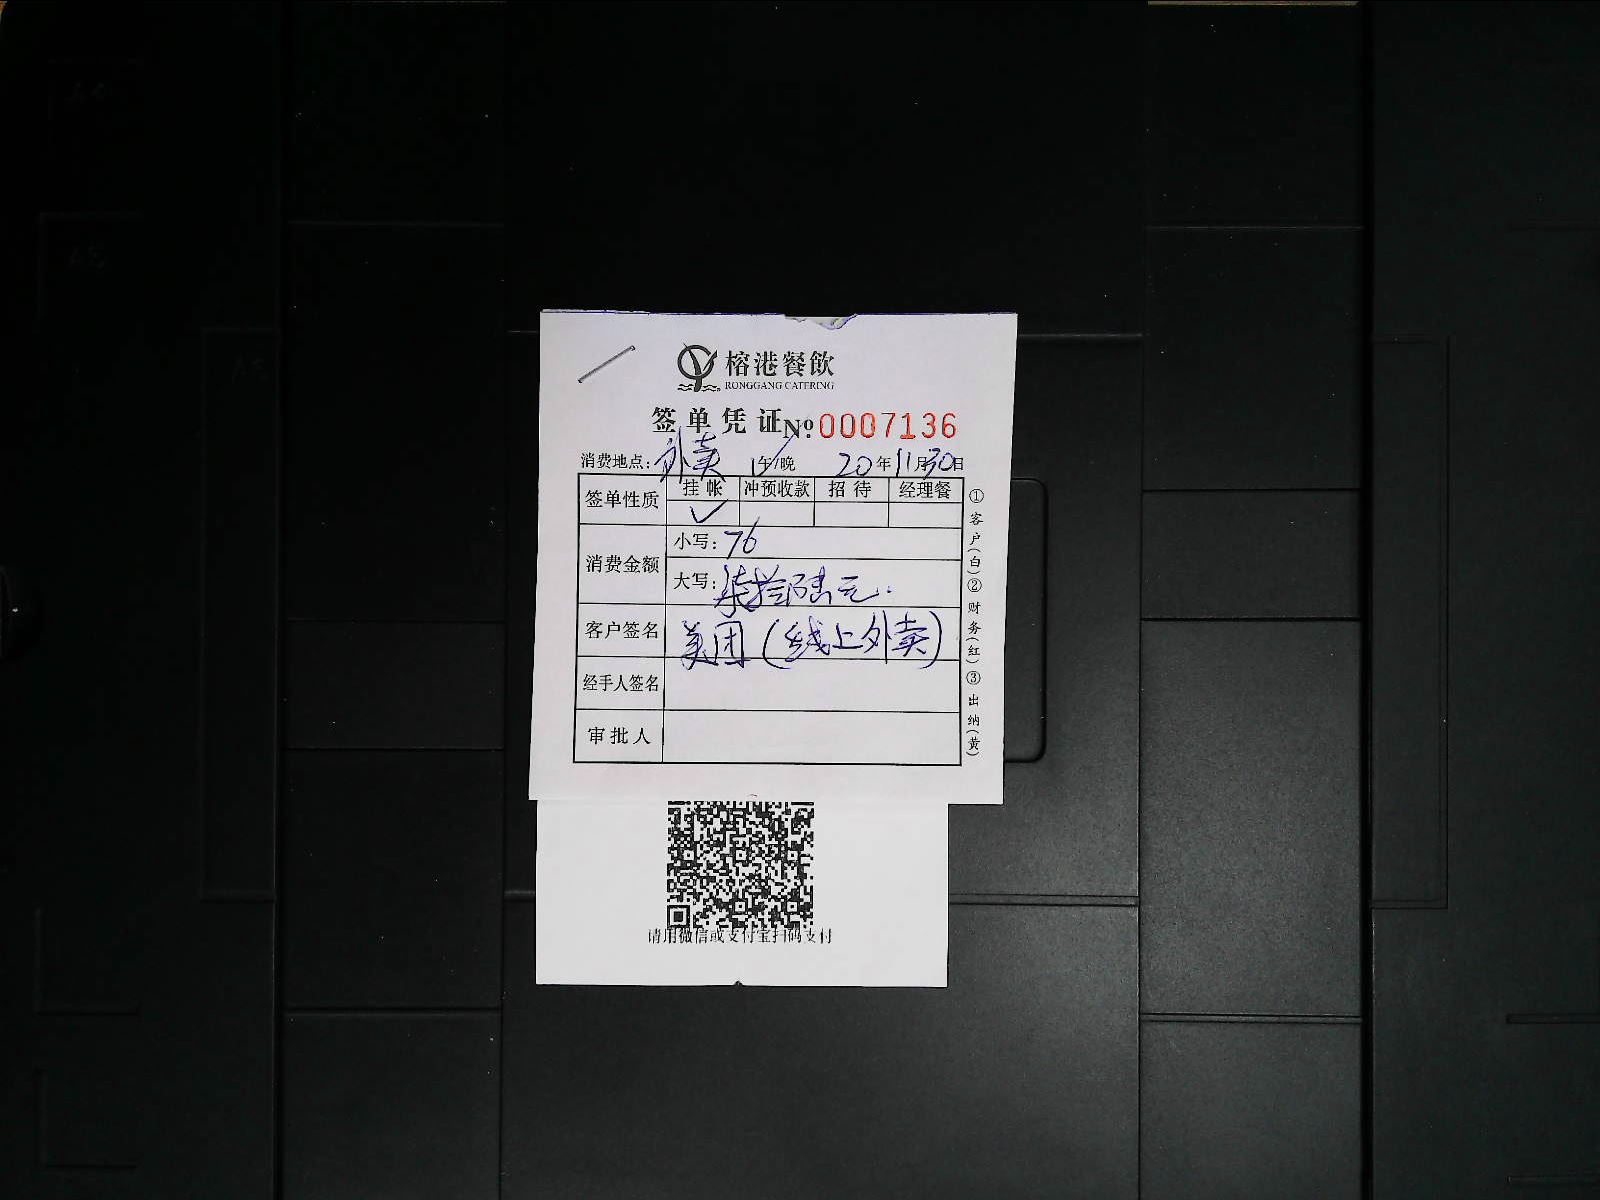 榕港餐飲
RONGGANG CATERING
签单凭证 No. 0007136
消费地点: 外卖 午/晚 20年11月30日
签单性质 挂帐 冲预收款 招待 经理餐
✓
消费金额 小写: 76
大写: 柒拾陆元.
客户签名 美团(线上外卖)
经手人签名
审批人
①客户(白)②财务(红)③出纳(黄)
请用微信或支付宝扫码支付